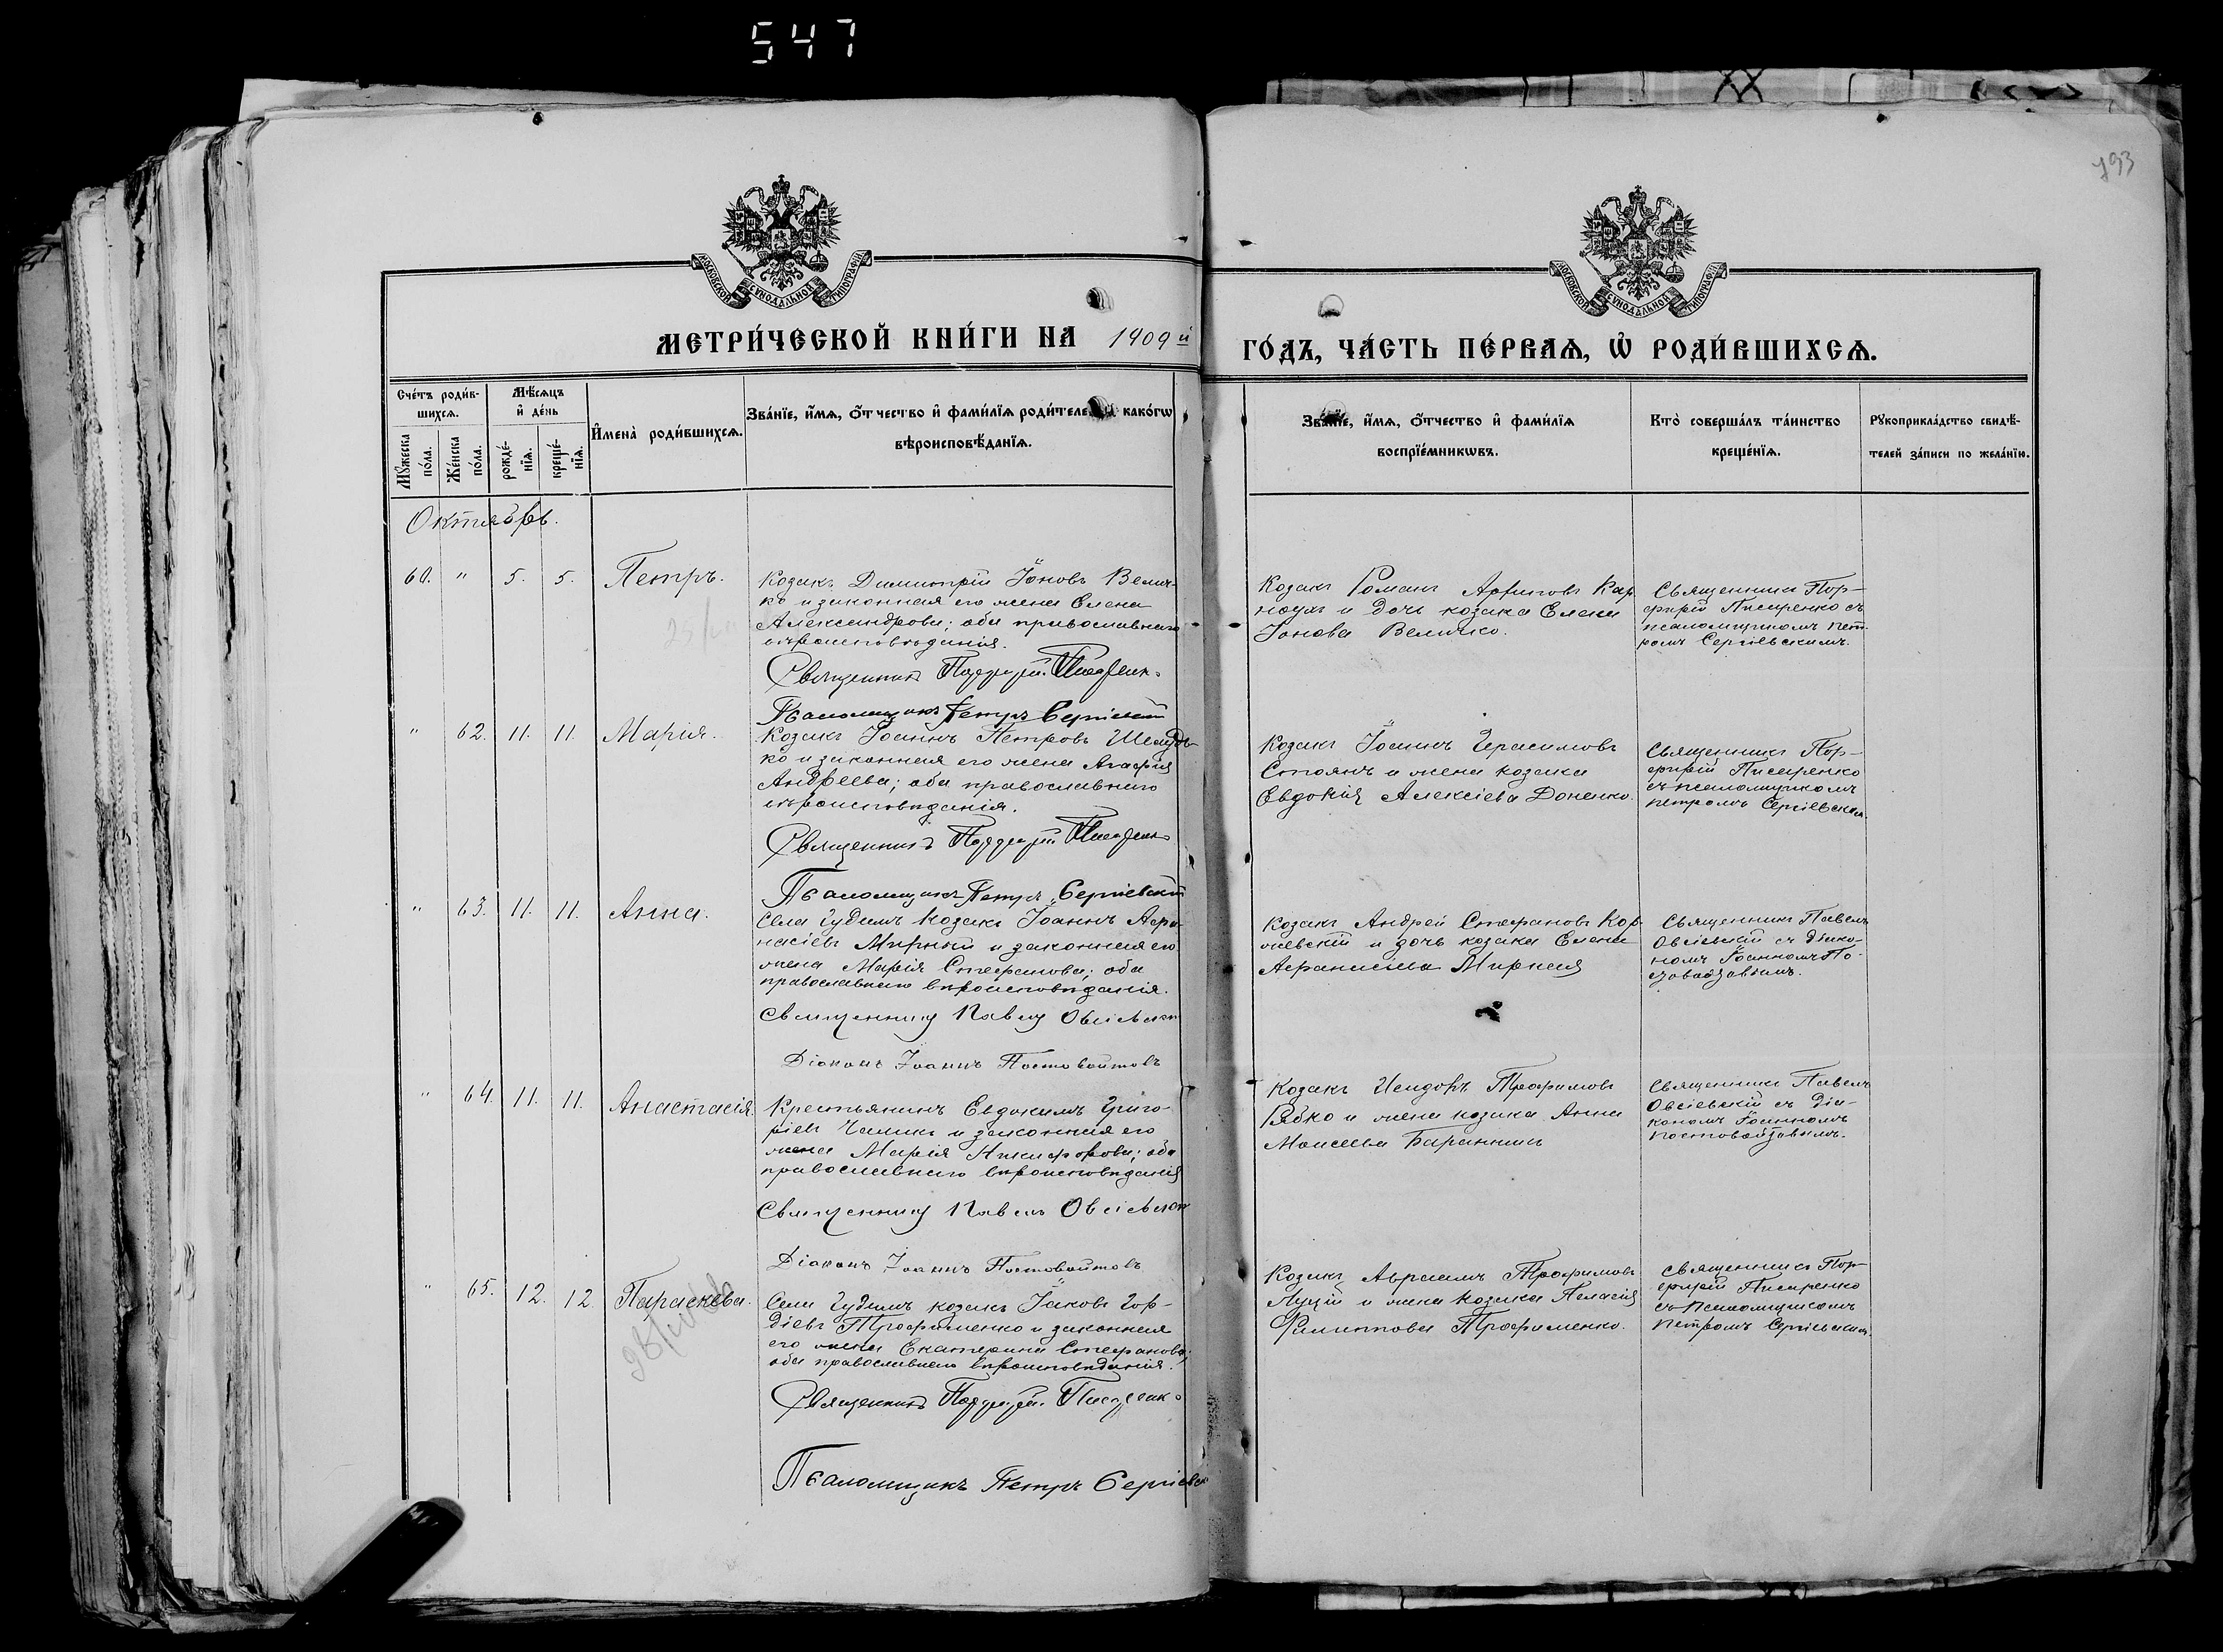 547
793
МОСКОВСКОЙ СѴНОДАЛЬНОЙ ТИПОГРАФІИ
МОСКОВСКОЙ СѴНОДАЛЬНОЙ ТИПОГРАФІИ
МЕТРИ́ЧЕСКОЙ КНИ́ГИ НА 1909 й
ГО́ДЪ, ЧА́СТЬ ПЕ́РВАѦ, Ѽ РОДИ́ВШИХСѦ.
Сче́тъ роди́в-
шихсѧ.
Мꙋ́жеска по́ла.
Же́нска по́ла.
Мѣ́сѧцъ
и҆ де́нь
рожде́-
нїѧ.
креще́-
нїѧ.
И҆мена̀ роди́вшихсѧ.
Зва́нїе, и҆́мѧ, ѻ҆́тчество и҆ фами́лїѧ роди́теле како́гѡ
вѣроисповѣ́данїѧ.
Зва́нїе, и҆́мѧ, ѻ҆́тчество и҆ фами́лїѧ
воспрїе́мникѡвъ.
Кто̀ соверша́лъ та́инство
креще́нїѧ.
Рꙋкоприкла́дство свидѣ́-
телей за́писи по жела́нїю.
Октябрь.
60. " 5. 5. Петръ.
Козакъ Димитрій Іоновъ Велич-
ко и законная его жена Елена
Александрова; оба православнаго
вѣроисповѣданія.
Священникъ Порфирій Писаренко
Псаломщикъ Петръ Сергіевскій
Козакъ Романъ
и дочь козака Елена
Іонова Величко.
Священникъ Пор-
фирій Писаренко съ
псаломщикомъ Пет-
ромъ Сергіевскимъ.
" 62. 11. 11. Марія.
Козакъ Іоаннъ Петровъ
ко и законная его жена Агафія
Андреева; оба православнаго
вѣроисповѣданія.
Священникъ Порфирій Писаренко
Псаломщикъ Петръ Сергіевскій
Козакъ Іоаннъ Герасимовъ
Стоянъ и жена козака
Евдокія Алексіева Доненко.
Священникъ Пор-
фирій Писаренко
съ псаломщикомъ
Петромъ Сергіевским.
" 63. 11. 11. Анна.
Села Гудимъ козакъ Іоаннъ Афа-
насіевъ Мирный и законная его
жена Марія Стефанова; оба
православнаго вѣроисповѣданія.
Священник Павел Овсіевскій
Діаконъ Іоаннъ Постовойтовъ
Козакъ Андрей Стефановъ Кор-
жевскій и дочь козака Елена
Афанасіева Мирная
Священникъ Павелъ
Овсіевскій съ діако-
номъ Іоанномъ По-
" 64. 11. 11. Анастасія.
Крестьянинъ Евдокимъ Григо-
ріевъ и законная его
жена Марія Никифорова; оба
православнаго вѣроисповѣданія
Священник Павелъ Овсіевскій
Діаконъ Іоаннъ Постовойтовъ
Козакъ Исидоръ Трофимовъ
Рябко и жена козака Анна
Моисеева
Священникъ Павелъ
Овсіевскій съ діа-
кономъ Іоанномъ
Постовойтовымъ.
" 65. 12. 12. Параскева.
Села Гудимъ козакъ Іаковъ Гор-
діевъ Трофименко и законная
его жена Екатерина Стефанова;
оба православнаго вѣроисповѣданія.
Священникъ Порфирій Писаренко
Псаломщикъ Петръ Сергіевск
Козакъ Авраамъ Трофимовъ
и жена козака Пелагія
Филиппова Трофименко.
Священникъ Пор-
фирій Писаренко
съ псаломщикомъ
Петромъ Сергіевским.